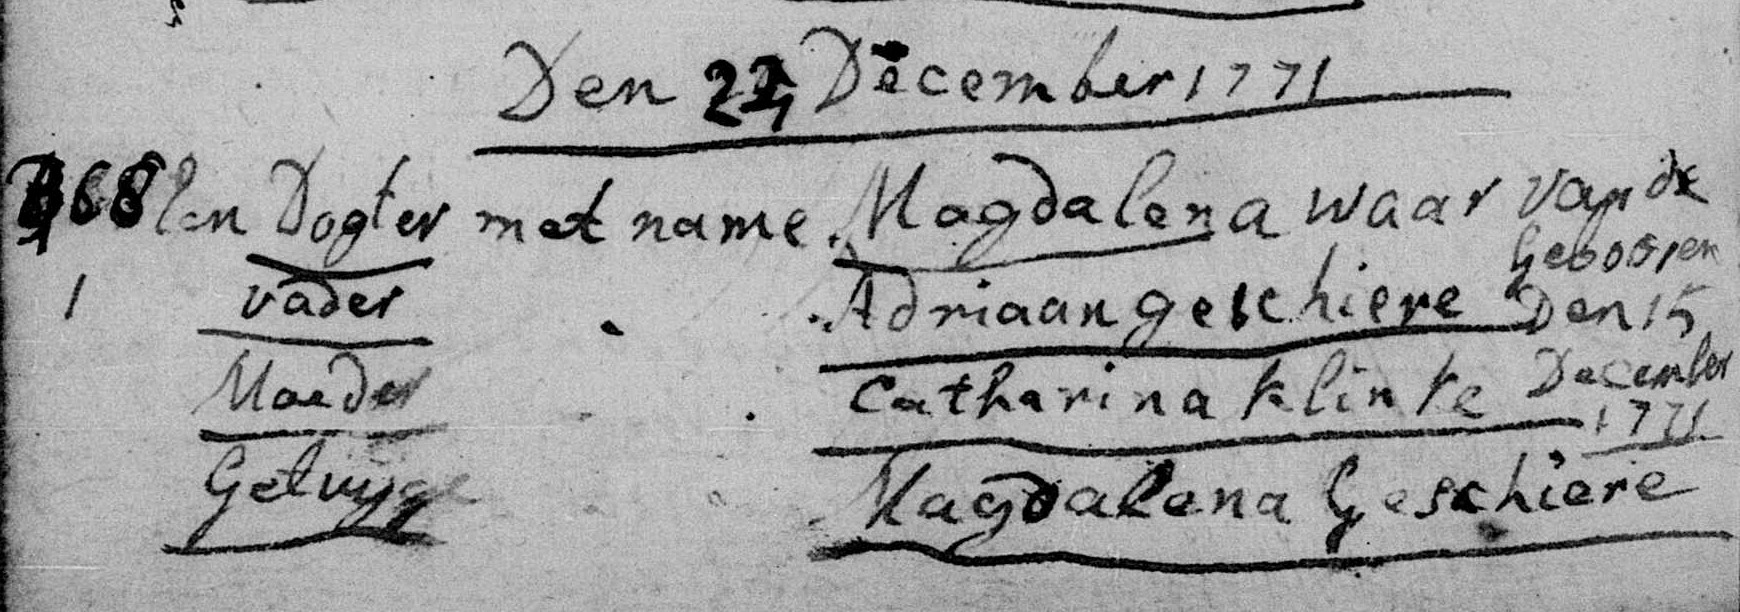 Den 22 December 1771
368 Een Dogter met name Magdalena waar van de
Gebooren
1 vader Adriaan geschiere Den 15
Moeder Catharina Klinke December
1771
Getuyge Magdalena Geschiere